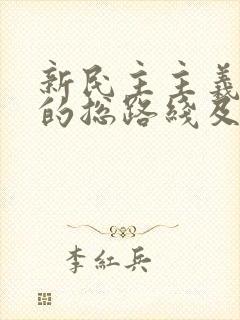 新民主主義
的総路綫及
李紅兵